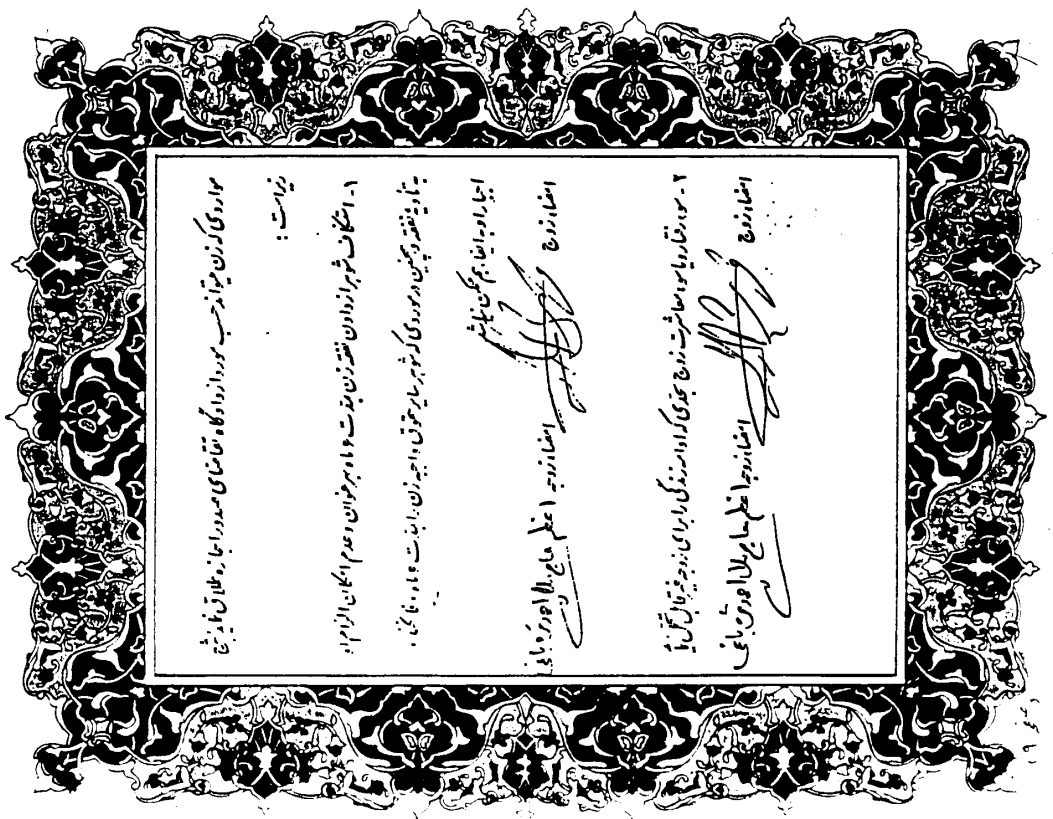 مواردی که زن میتواند حسب مورد از دادگاه تقاضای صدور اجازه طلاق نماید بشرح
زیر است :
۱- استنکاف شوهر از دادن نفقه زن بمدت ۶ ماه بهر عنوان و عدم امکان الزام او
به تأدیه نفقه و همچنین در موردی که شوهر سایر حقوق واجبه زن را بمدت ۶ ماه وفا نکند و
اجبار او به ایفاء هم ممکن نباشد
امضاء زوج امضاء زوجه اعظم حاج ملا احمد
۲- سوء رفتار و یا سوء معاشرت زوج بحدی که ادامه زندگی را برای زوجه غیر قابل تحمل نماید
امضاء زوج امضاء زوجه اعظم حاج ملا احمد